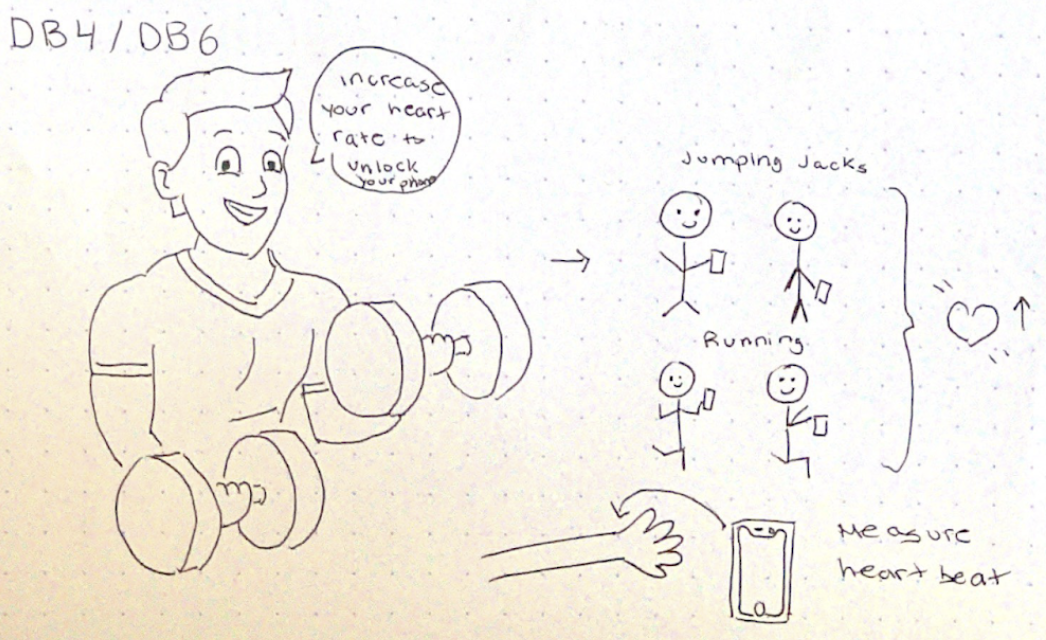 DB4/DB6
increase
your heart
rate to
unlock
your phone
Jumping Jacks
Running
Measure
heart beat